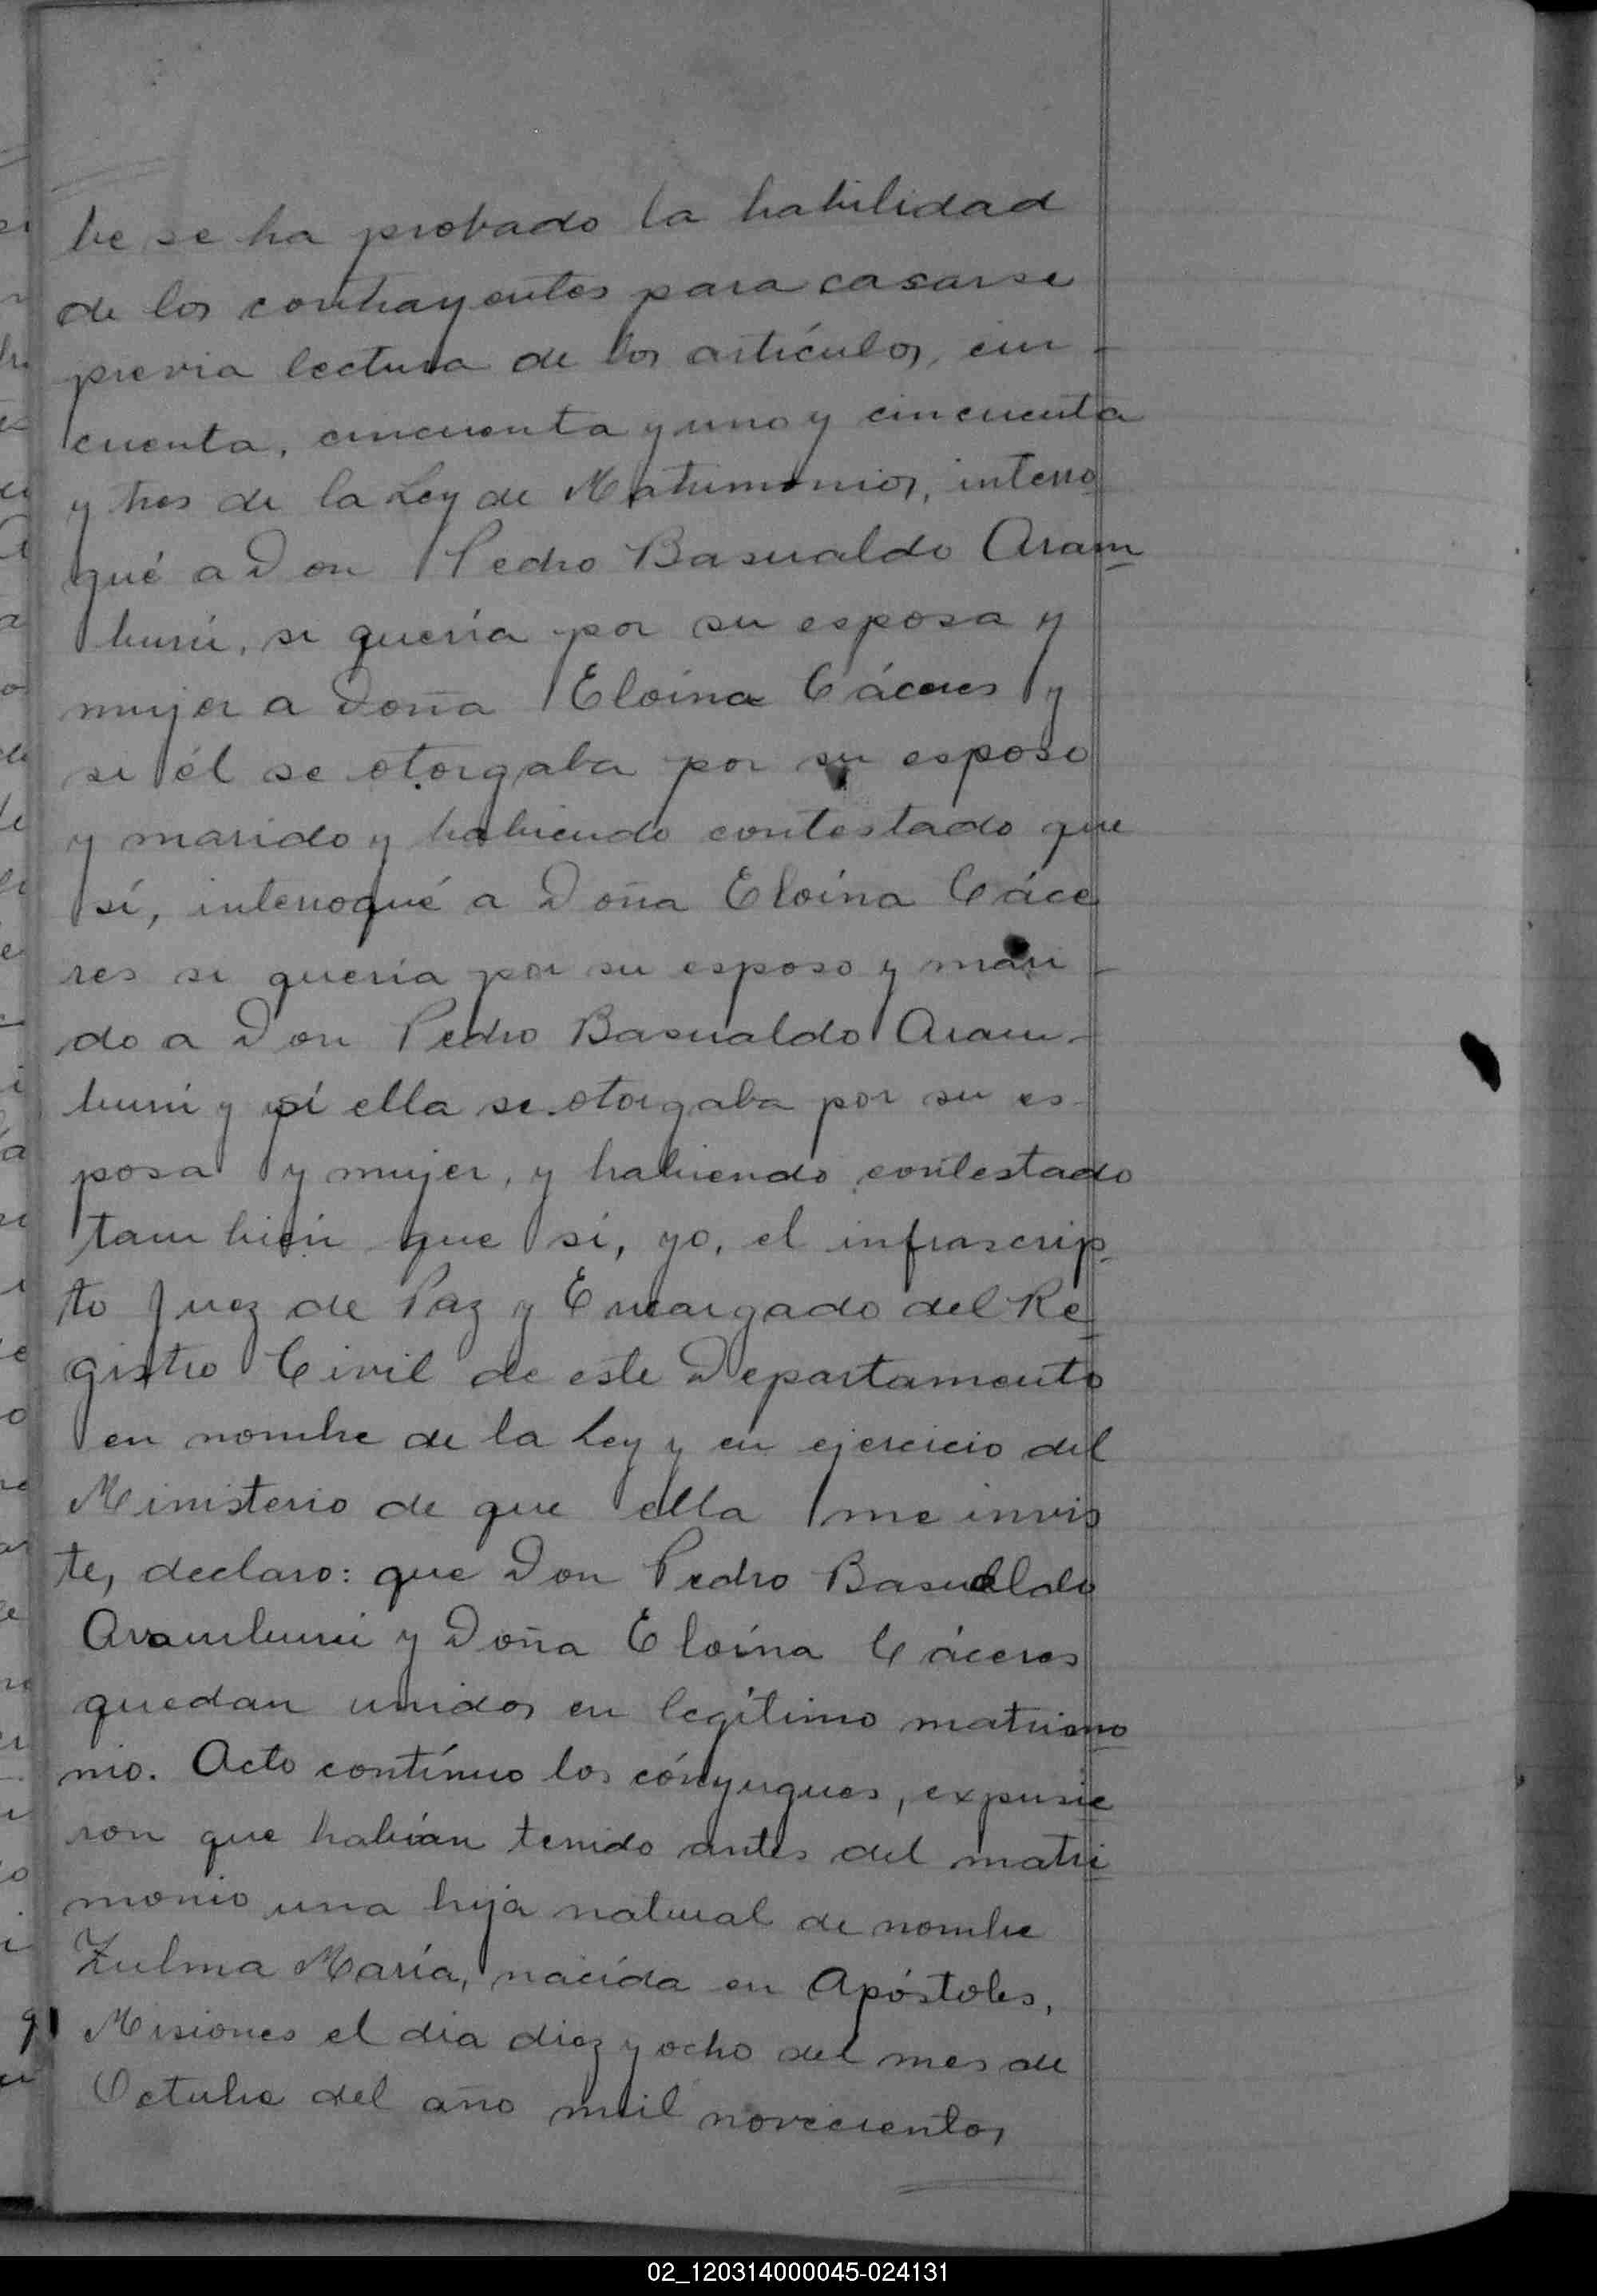 be se ha probado la habilidad
de los contrayentes para casarse
previa lectura de los artículos, cin-
cuenta, cincuenta y uno y cincuenta
y tres de la Ley de Matrimonios, interro
gué a Don Pedro Basualdo Aram
burú, si quería por su esposa y
mujer a Doña Eloína Cáceres y
si él se otorgaba por su esposo
y marido y habiendo contestado que
sí, interrogué a Doña Eloína Cáce
res si quería por su esposo y mari-
do a Don Pedro Basualdo Aram-
burú y si ella se otorgaba por su es-
posa y mujer, y habiendo contestado
también que sí, yo, el infrascrip
to Juez de Paz y Encargado del Re
gistro Civil de este Departamento
en nombre de la Ley y en ejercicio del
Ministerio de que ella me invis
te, declaro: que Don Pedro Basualdo
Aramburú y Doña Eloína Cáceres
quedan unidos en legítimo matrimo
nio. Acto contínuo los cónyugues, expusie
ron que habían tenido antes del matri
monio una hija natural de nombre
Zulma María, nacida en Apóstoles,
Misiones el dia diez y ocho del mes de
Octubre del año mil novecientos
02_120314000045-024131